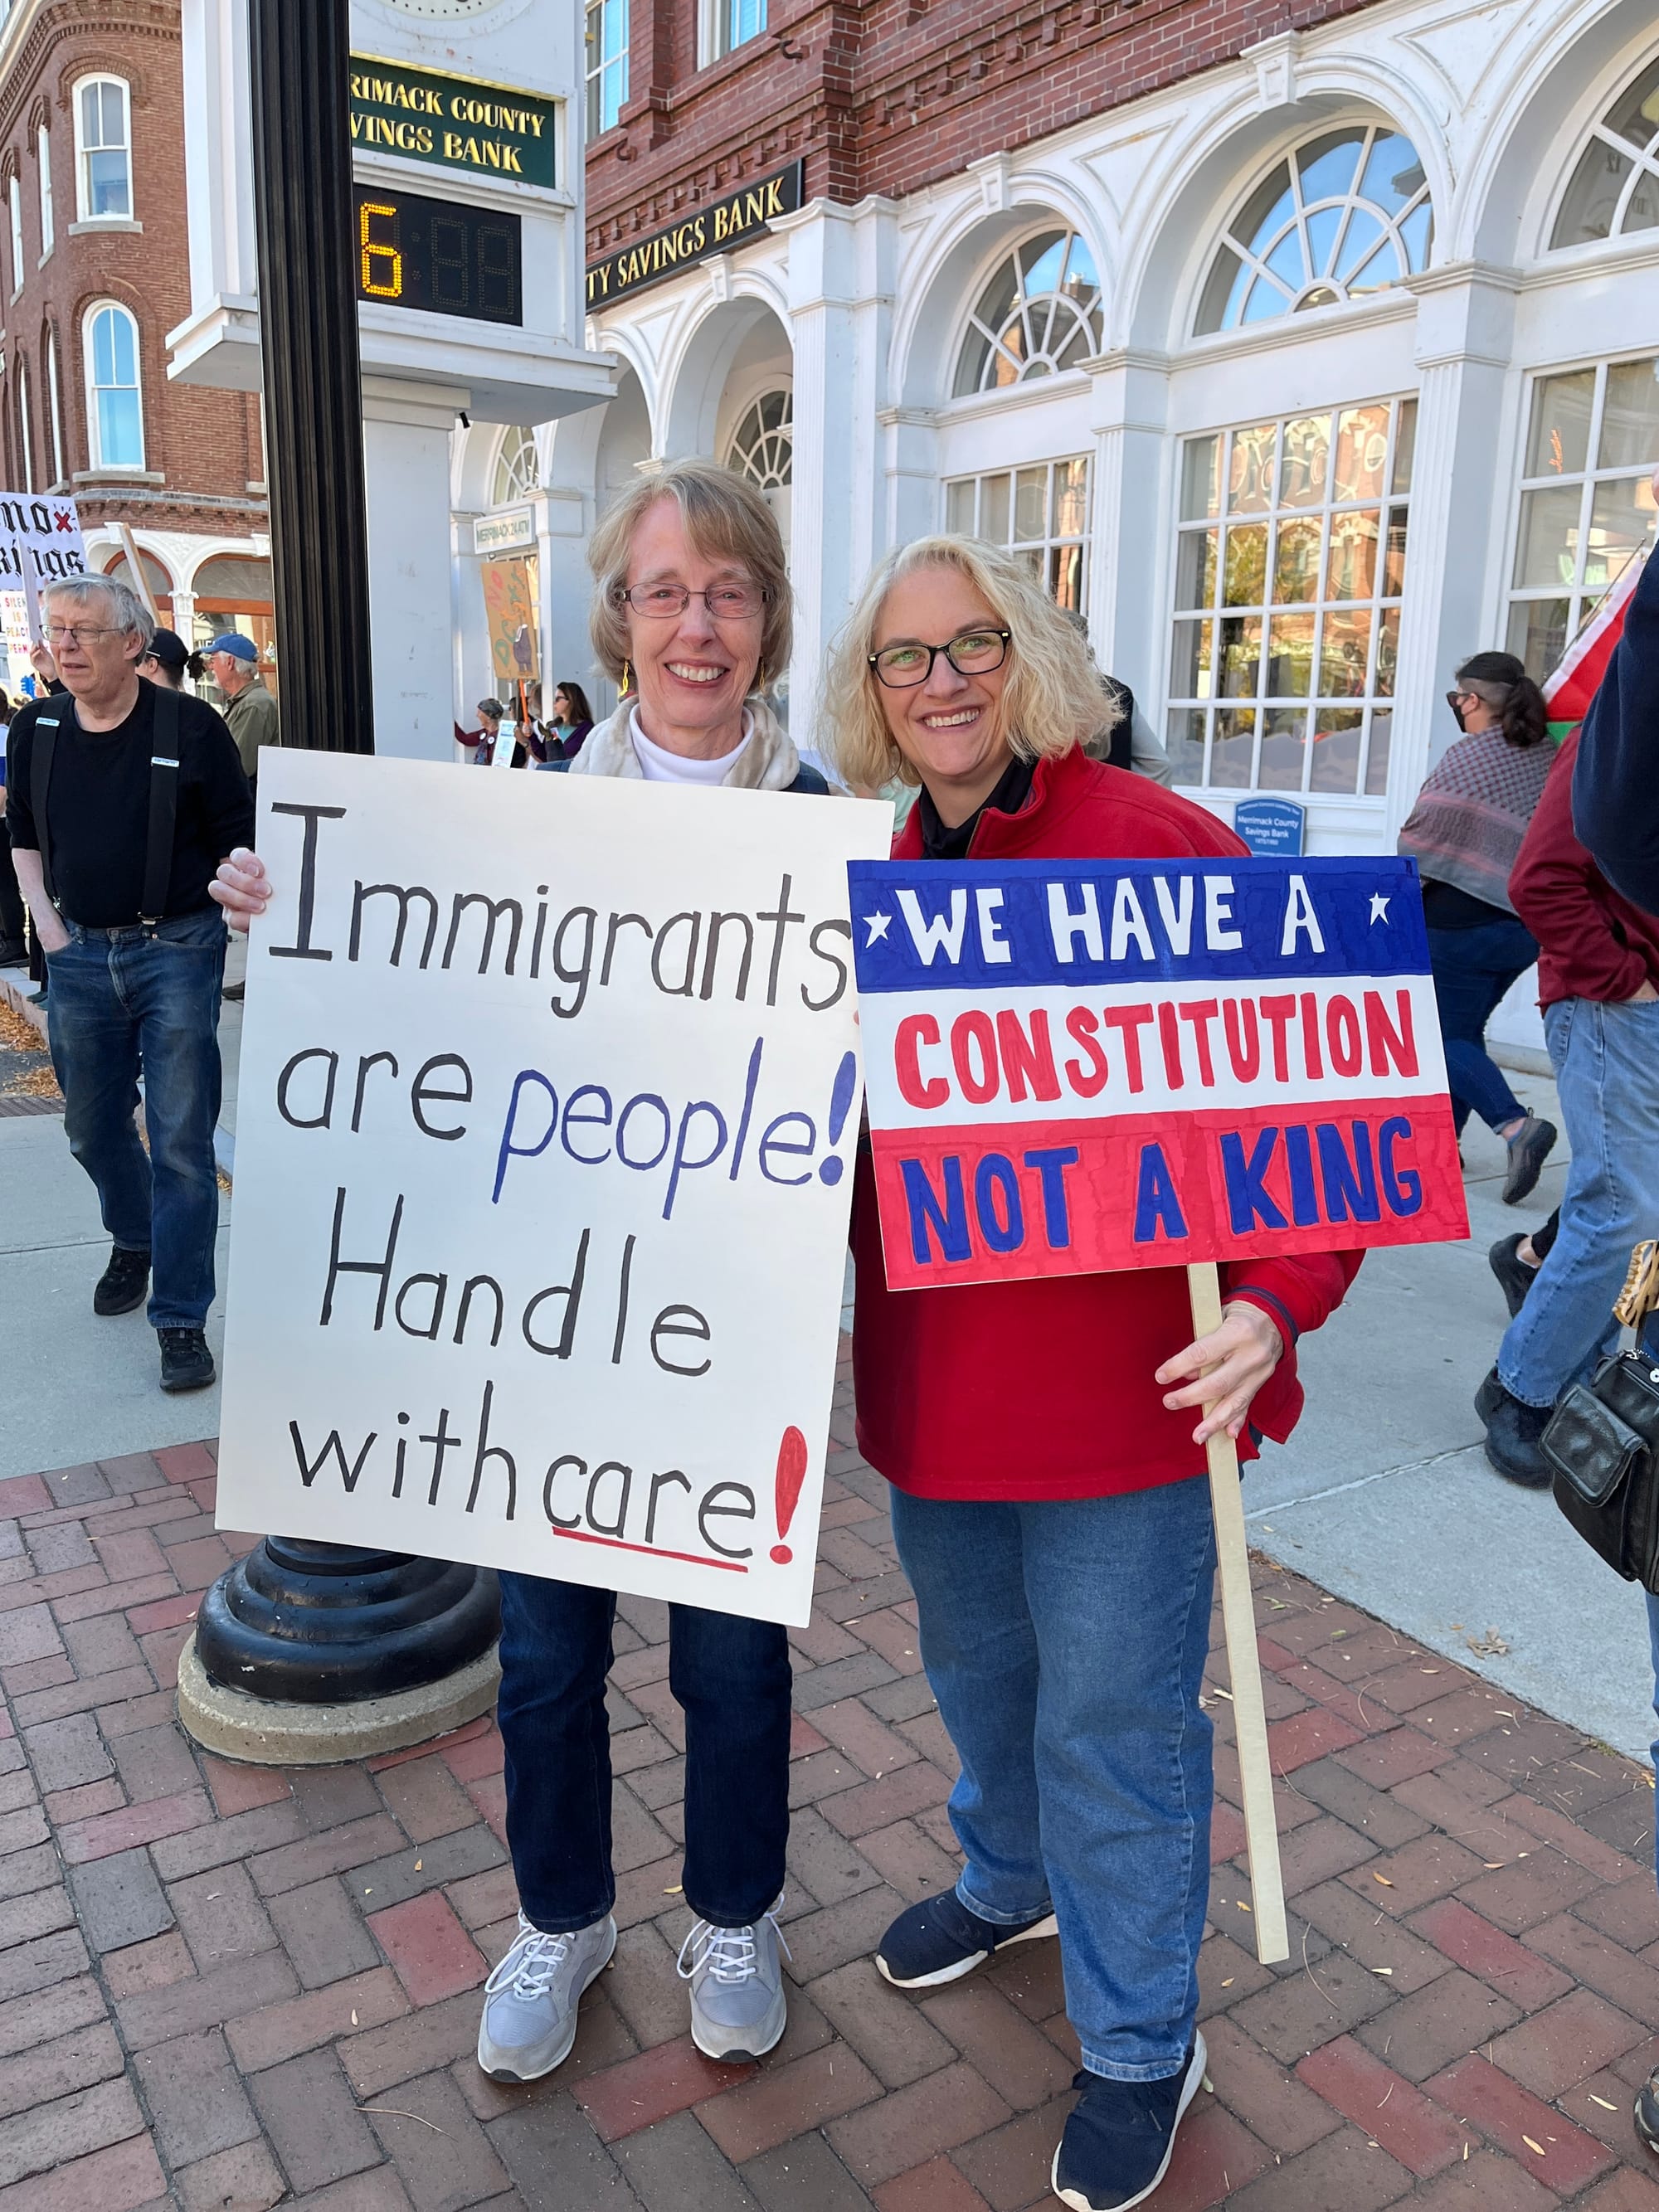 RIMACK COUNTY
VINGS BANK
6
TY SAVINGS BANK
MERRIMACK 24 ATM
no x
kings
Merrimack County
Savings Bank
Immigrants
are people!
Handle
with care!
WE HAVE A
CONSTITUTION
NOT A KING